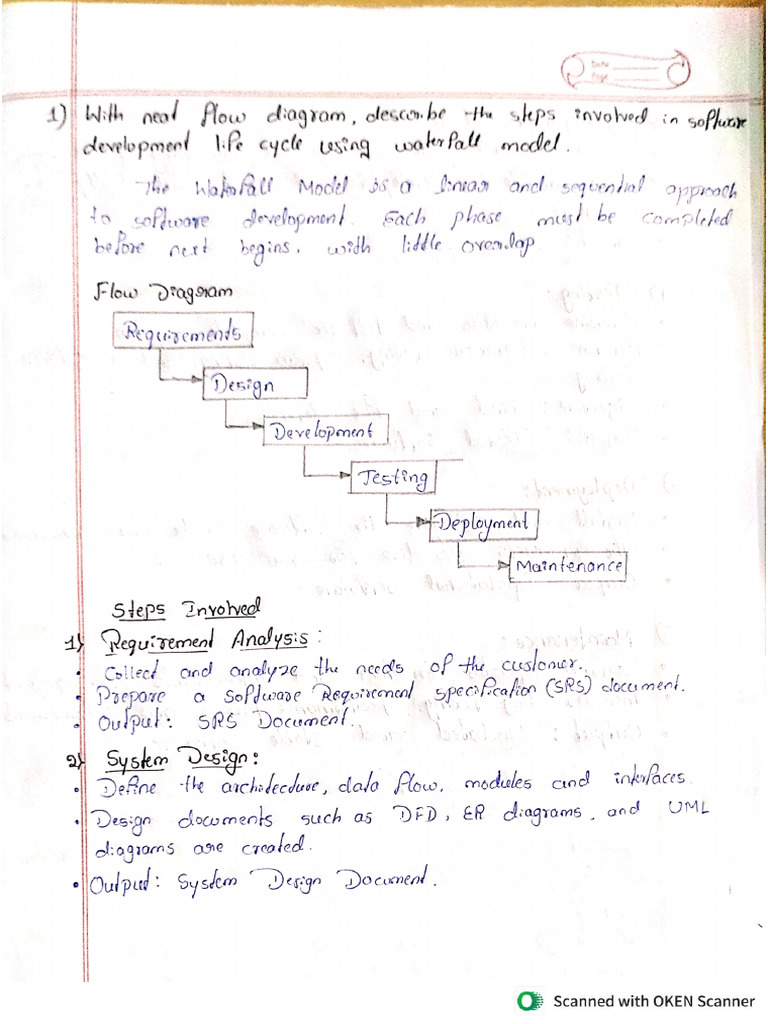 Date
Page
1) With neat flow diagram, describe the steps involved in software
development life cycle using waterfall model.
The Waterfall Model is a linear and sequential approach
to software development. Each phase must be completed
before next begins, with little overlap
Flow Diagram
Requirements
Design
Development
Testing
Deployment
Maintenance
Steps Involved
1) Requirement Analysis:
• Collect and analyze the needs of the customer.
• Prepare a Software Requirement specification (SRS) document.
• Output: SRS Document.
2) System Design:
• Define the architecture, data flow, modules and interfaces.
• Design documents such as DFD, ER diagrams, and UML
diagrams are created.
• Output: System Design Document.
Scanned with OKEN Scanner